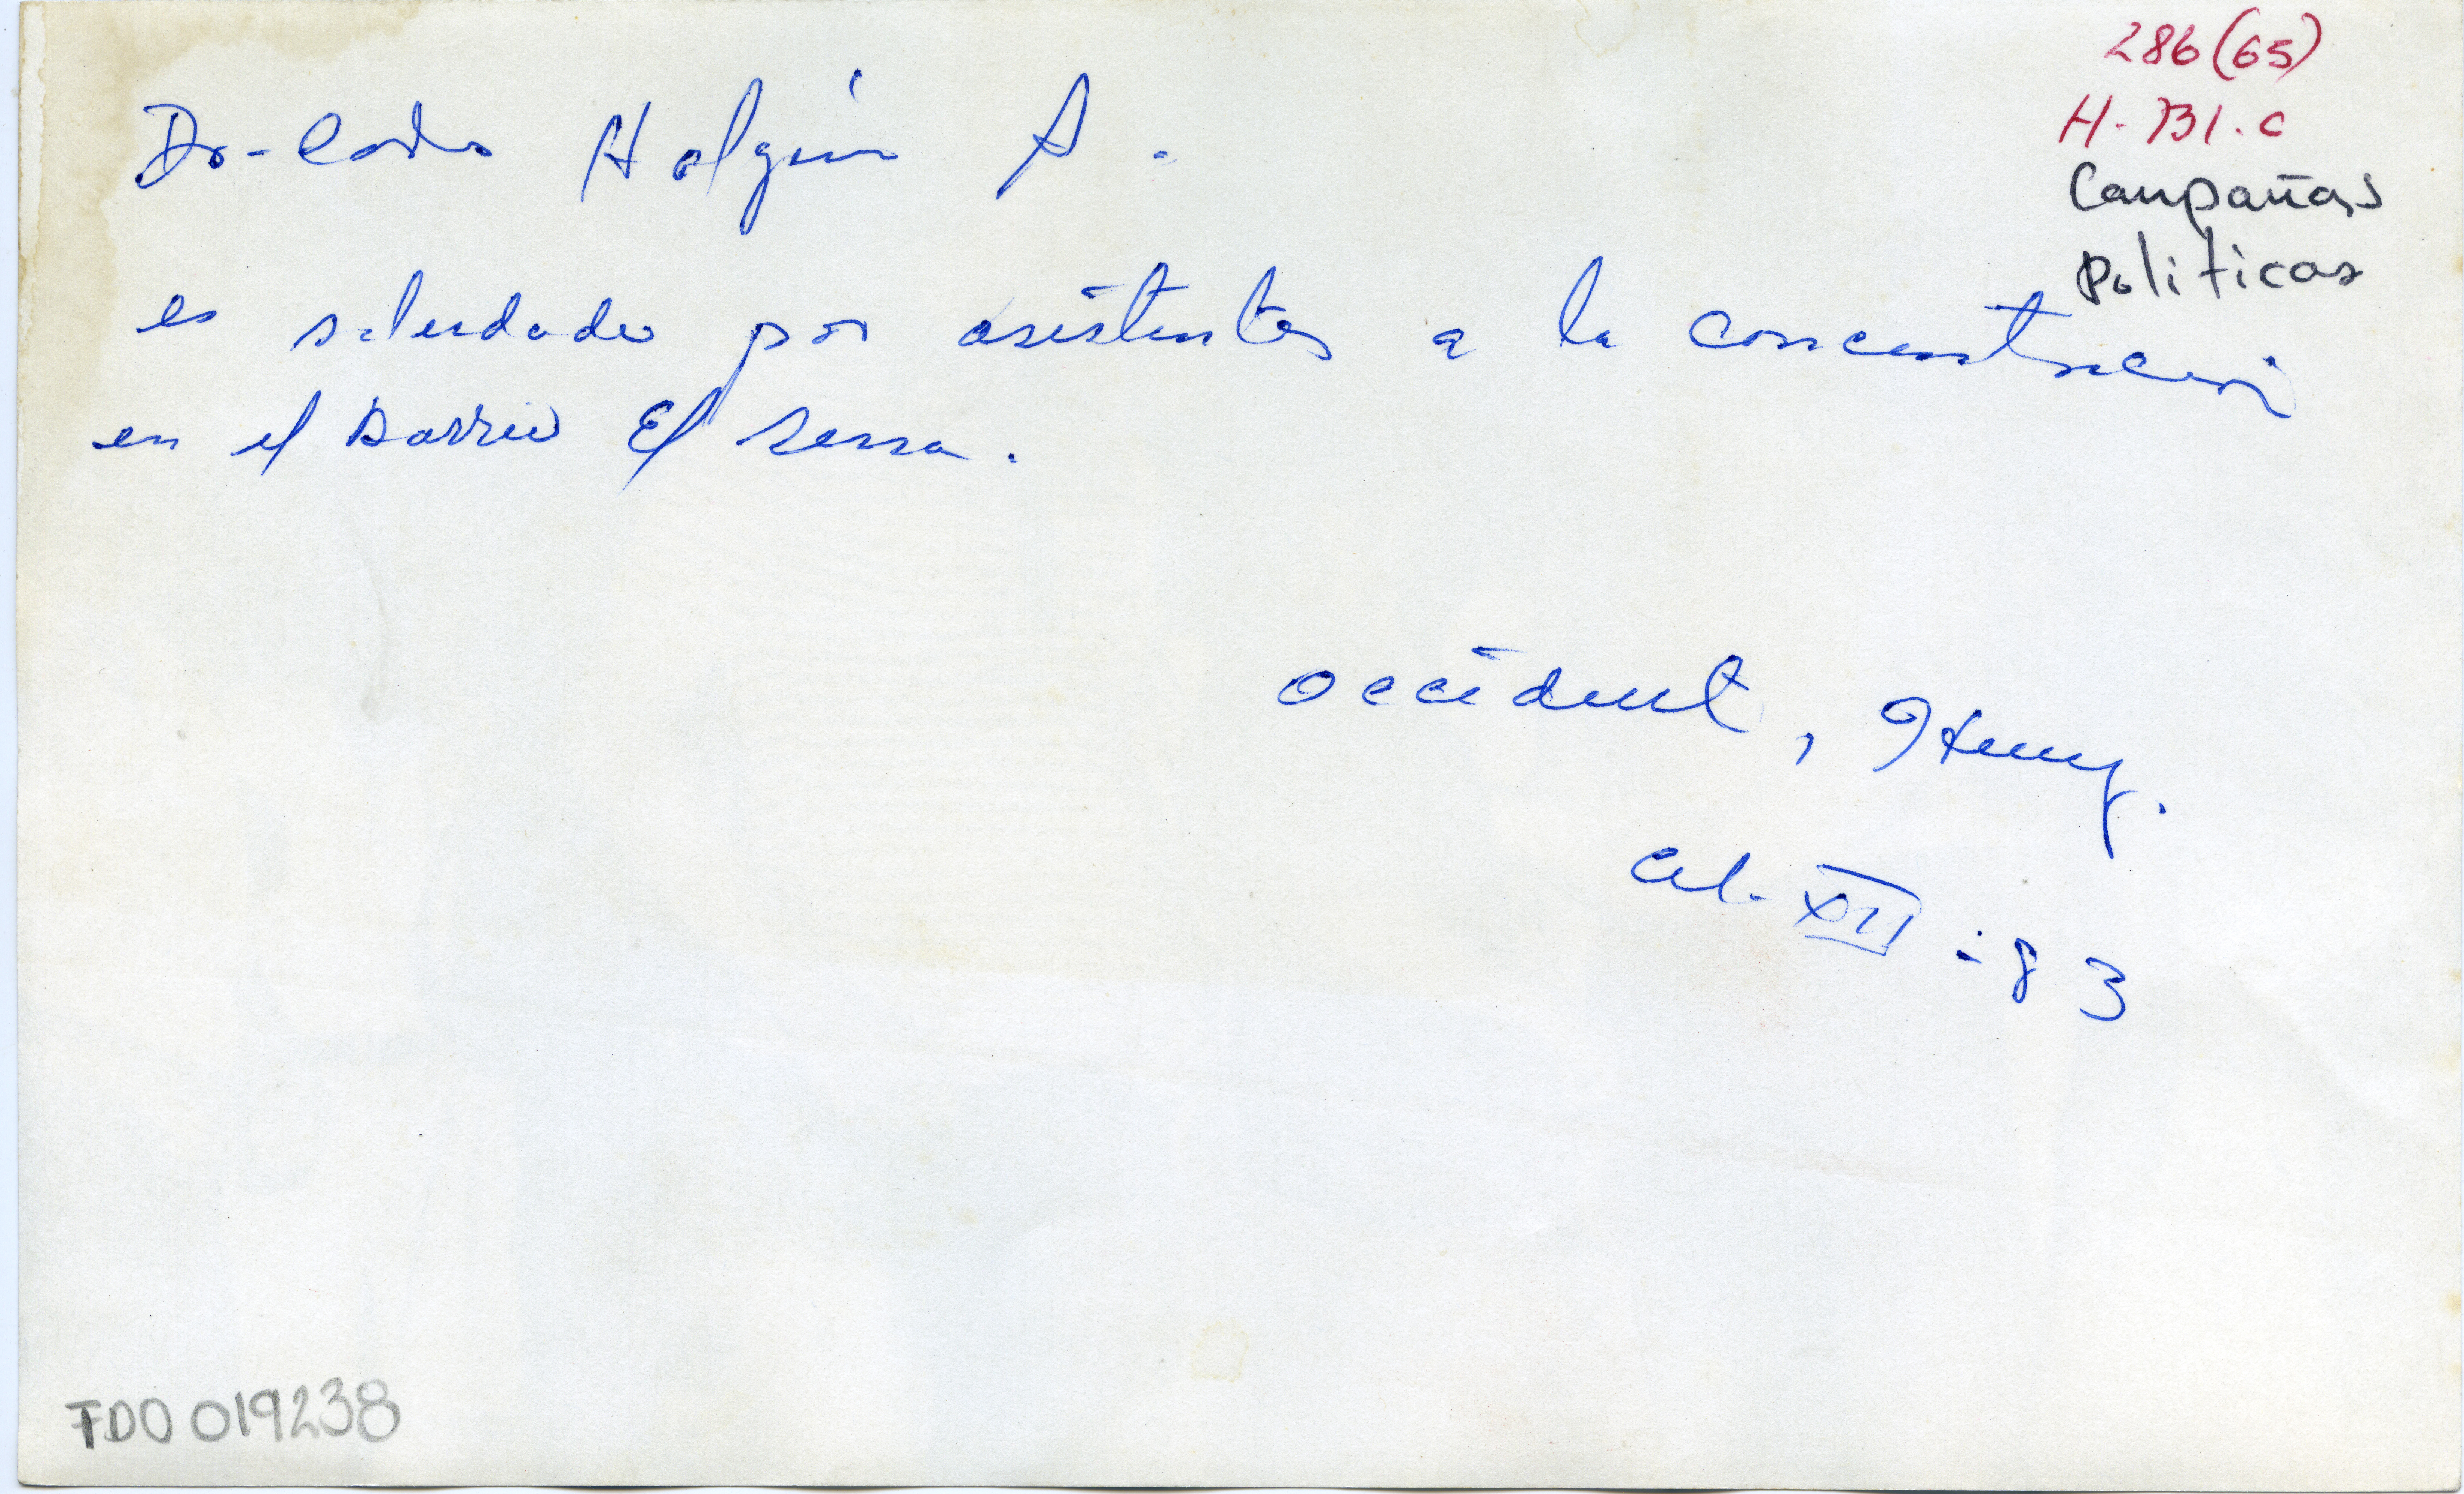 286 (65)
H-731.c
Campañas
Politicas
Dr-Carlos Holguín A.
es saludado por asistentes a la concentración
en el Barrio El
Occidente, Henry.
XII-83
FDO 019238